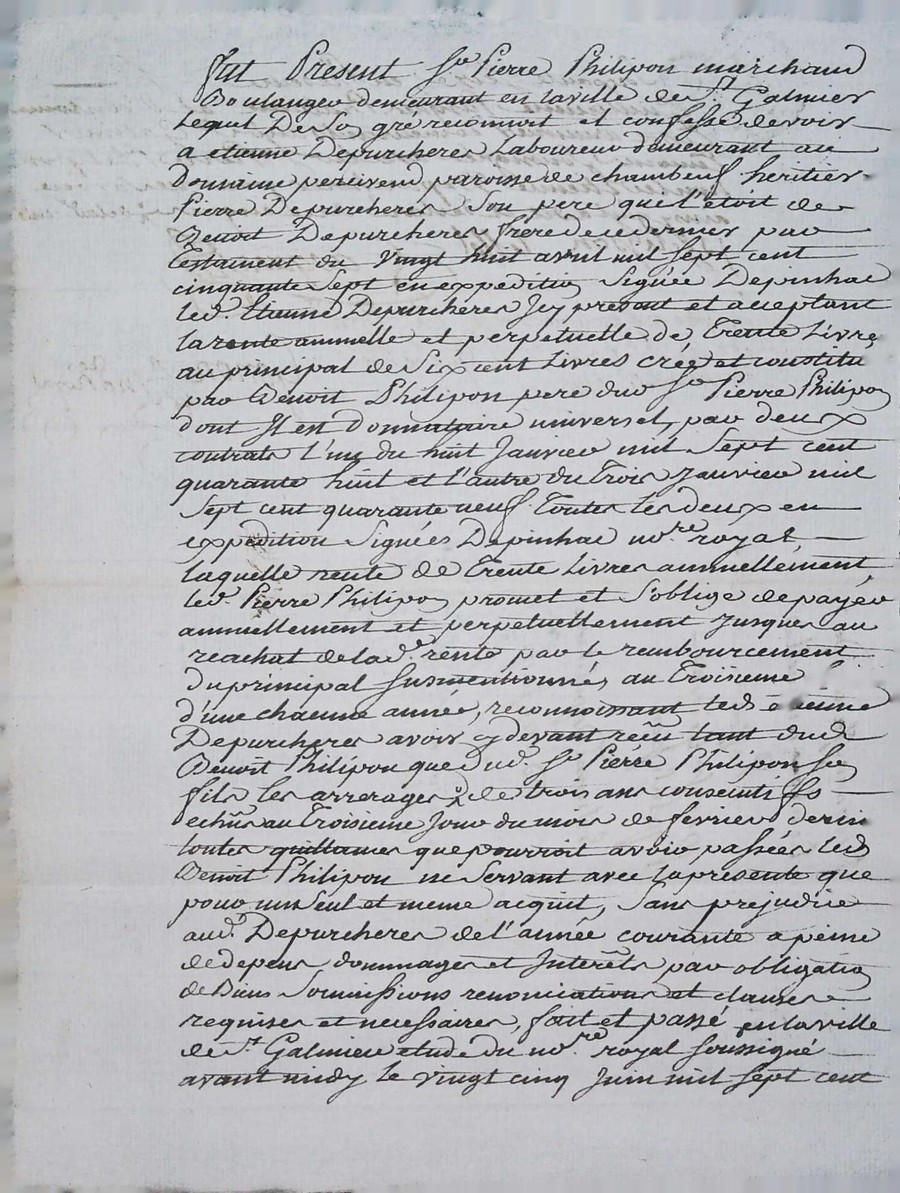 fut Present Sr Pierre Philipon marchand
Boulanger demeurant en la ville de St Galmier
Lequel De Son gré reconnoit et confesse devoir
a etienne Depurcheres Laboureur demeurant au
domaine paroisse de chambeuf heritier
Pierre Depurcheres Son pere qui l'étoit de
Benoit Depurcheres frere de ce dernier par
Testament du Vingt huit avril mil sept cent
cinquante Sept en expedition Signée Depinhac
led. Etienne Depurcheres Icy present et acceptant
la rente annuelle et perpetuelle de Trente Livres
au principal de Six cent Livres créé et constitué
par Benoit Philipon pere dud Sr Pierre Philipon
dont Il est Donnataire universel, par deux
contrats l'un du huit Janvier mil Sept cent
quarante huit et l'autre du Trois Janvier mil
Sept cent quarante neuf Toutes les deux en
expedition Signées Depinhac nore royal
laquelle rente de Trente Livres annuellement
led. Pierre Philipon promet et S'oblige de payer
annuellement et perpetuellement Jusques au
reachat de lade rente par le rembourcement
du principal Susmentionné, au Troisieme
d'une chacune année, reconnoissant led etienne
Depurcheres avoir cy devant reçu tant dud
Benoit Philipon que dud. Sr Pierre Philipon Son
fils les arrerages de trois ans consecutifs
echus au Troisieme Jour du mois de fevrier dernier
toutes quittances que pourroit avoir passées led
Benoit Philipon ne Servant avec la presente que
pour un Seul et meme acquit, Sans prejudice
aud. Depurcheres de l'année courante a peine
de depens dommages et Interets par obligation
de Biens Soumissions renonciations et clauses
requises et necessaires, fait et passé en la ville
de St Galmier etude du nore royal soussigné
avant midy le vingt cinq Juin mil sept cent